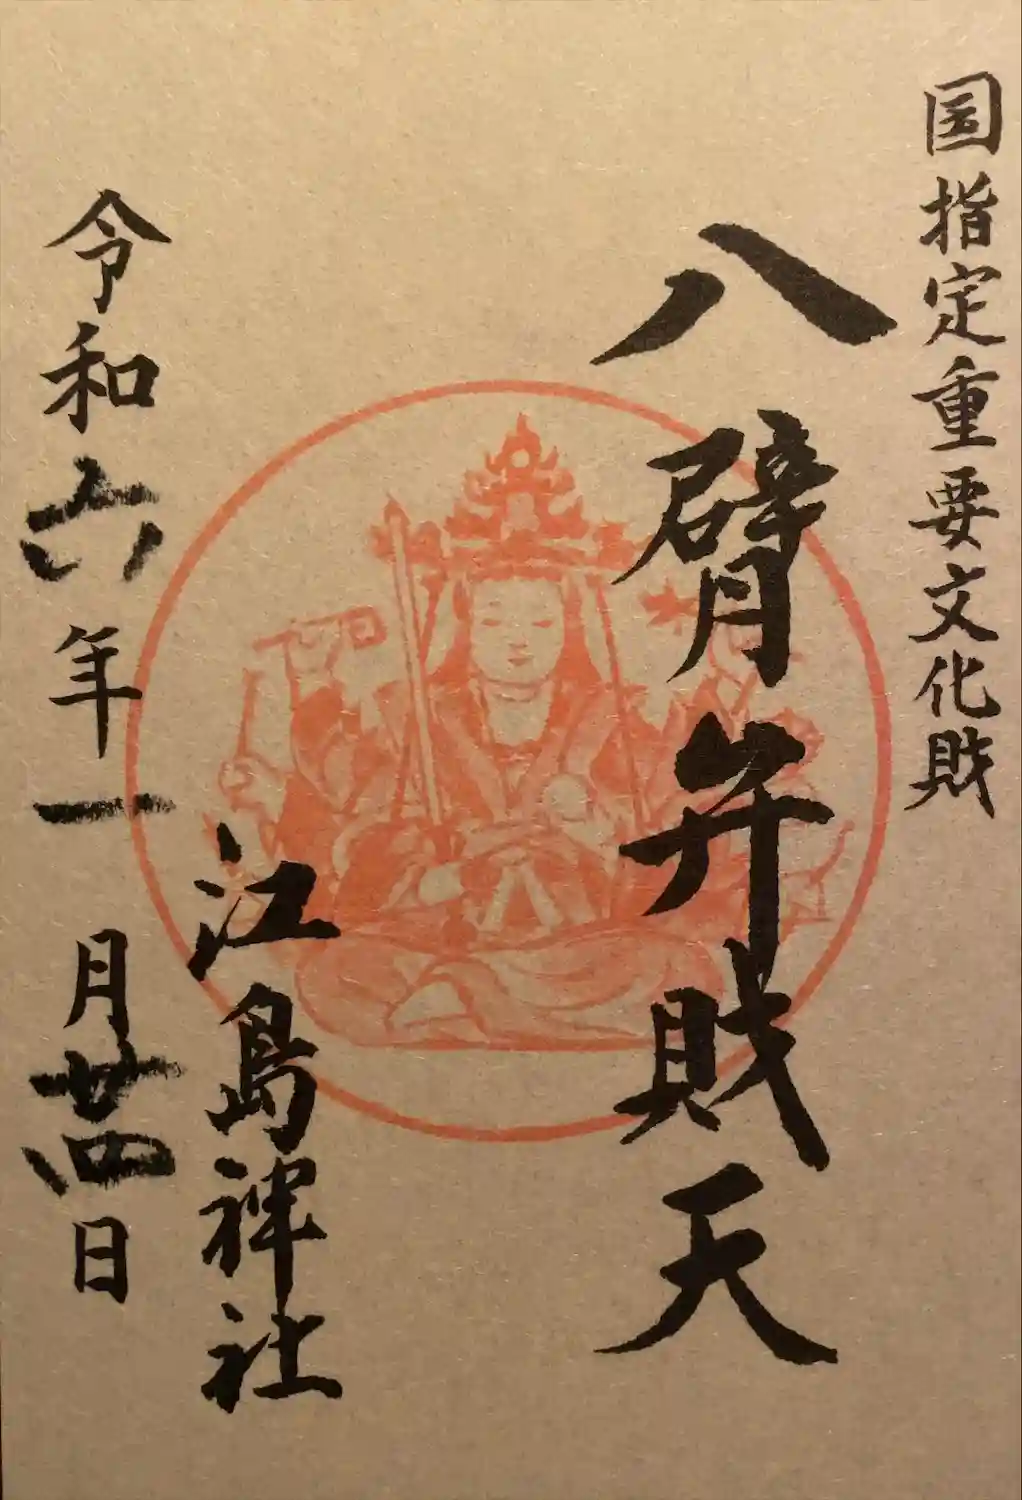 国指定重要文化財
八臂弁財天
江島神社
令和六年一月廿四日